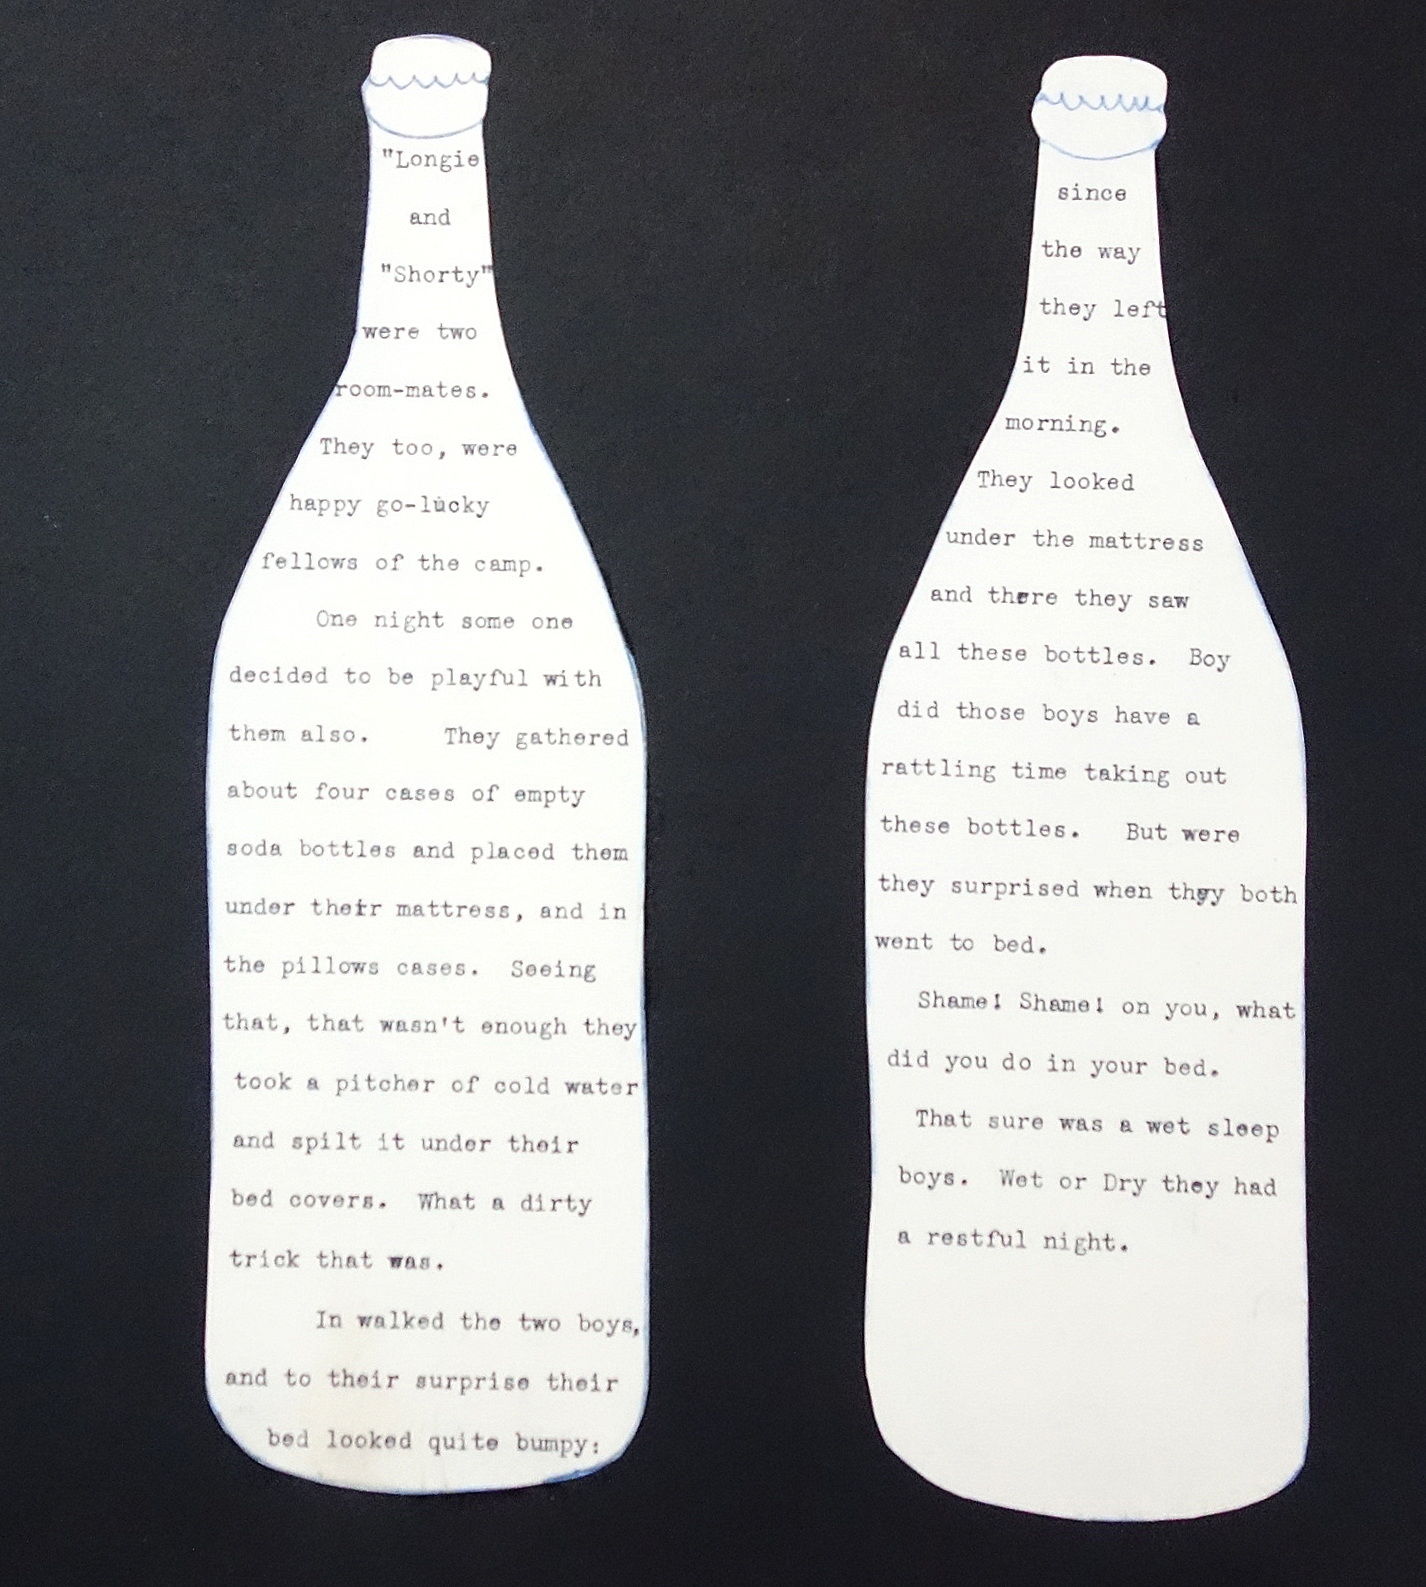 "Longie
and
"Shorty"
were two
room-mates.
They too, were
happy go-lucky
fellows of the camp.
One night some one
decided to be playful with
them also. They gathered
about four cases of empty
soda bottles and placed them
under their mattress, and in
the pillows cases. Seeing
that, that wasn't enough they
took a pitcher of cold water
and spilt it under their
bed covers. What a dirty
trick that was.
In walked the two boys,
and to their surprise their
bed looked quite bumpy:
since
the way
they left
it in the
morning.
They looked
under the mattress
and there they saw
all these bottles. Boy
did those boys have a
rattling time taking out
these bottles. But were
they surprised when they both
went to bed.
Shame! Shame! on you, what
did you do in your bed.
That sure was a wet sleep
boys. Wet or Dry they had
a restful night.